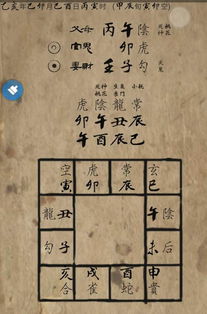 乙亥年己卯月己酉日丙寅时 (甲辰旬寅卯空)
父 丙 午 陰
官鬼 卯 虎
妻財 壬 子 勾
虎 陰 龍 常
卯 午 丑 辰
午 酉 辰 巳
空 虎 常 玄
寅 卯 辰 巳
龍 丑 午 陰
勾 子 未 后
亥 戌 酉 申
合 雀 蛇 貴